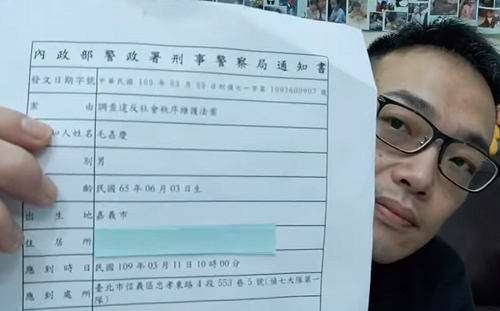 內政部警政署刑事警察局通知書
發文日期字號 中華民國 109 年 03 月 09 日刑偵七一字第 1093600907 號
案由 調查違反社會秩序維護法案
知人姓名 毛嘉慶
別 男
齡 民國 65 年 06 月 03 日生
出生地 嘉義市
住居所
應到時日 民國 109 年 03 月 11 日 10 時 00 分
應到處所 臺北市信義區忠孝東路 4 段 553 巷 5 號(偵七大隊第一
隊)